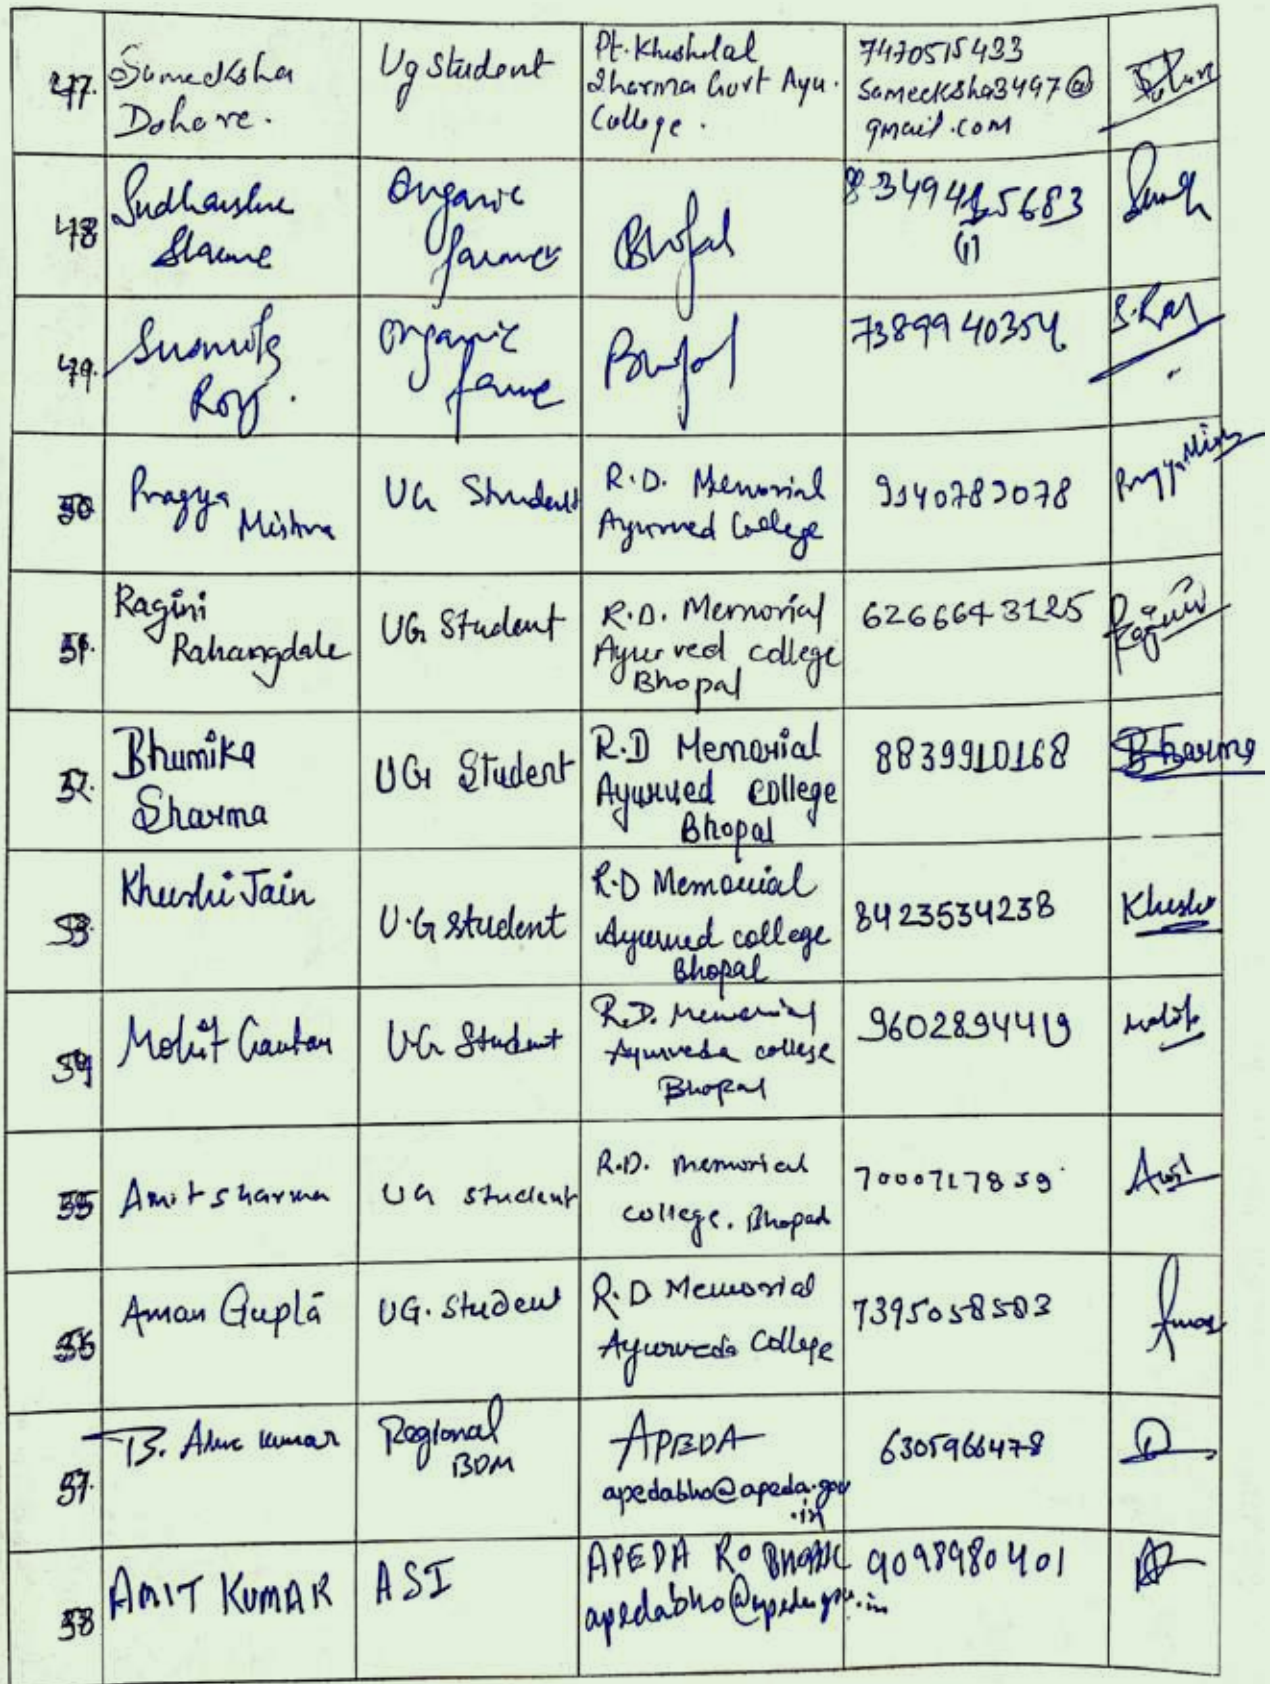 47. Sameeksha Dohare. Ug Student Pt. Khushilal Sharma Govt Ayu. College. 7470515433 Sameeksha3497@gmail.com
48 Sudhanshu Sharma Organic farmer Bhopal 83494 5683 (1)
49. Susmita Roy. Organic farme Bhopal 7389940354 S. Roy
50 Pragya Mishra UG Student R.D. Memorial Ayurved College 9140789078 Pragya Mishra
51. Ragini Rahangdale UG Student R.D. Memorial Ayurved college Bhopal 6266643125 Ragini
52. Bhumika Sharma UG Student R.D Memorial Ayurved college Bhopal 8839910168 BSharma
53 Khushi Jain U.G Student R.D Memorial Ayurved college Bhopal 8423534238 Khushi
54 Mohit Gautam UG Student R.D. Memorial Ayurveda college Bhopal 9602894419 Mohit
55 Amit sharma UG student R.D. memorial college. Bhopal 7000717859 Amit
56 Aman Gupta UG. Student R.D Memorial Ayurveda College 7395058503 Aman
57. B. kumar Regional BDM APEDA apedabho@apeda.gov.in 6305966478
58 AMIT KUMAR ASI APEDA RO BHOPAL apedabho@apeda.gov.in 9098980401